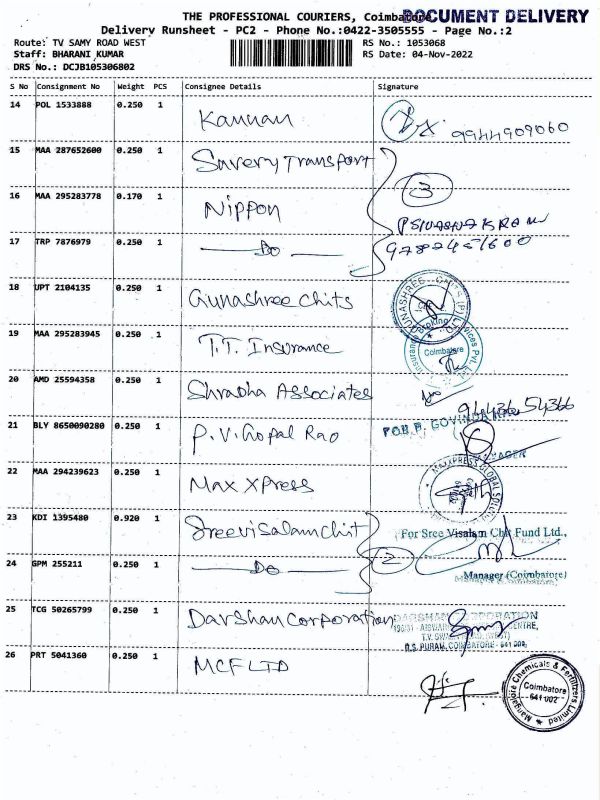 THE PROFESSIONAL COURIERS, Coimbatore
DOCUMENT DELIVERY
Delivery Runsheet - PC2 - Phone No.:0422-3505555 - Page No.:2
Route: TV SAMY ROAD WEST
RS No.: 1053068
Staff: BHARANI KUMAR
RS Date: 04-Nov-2022
DRS No.: DCJB105306802
S No Consignment No Weight PCS Consignee Details Signature
14 POL 1533888 0.250 1 Kannan 9944909060
15 MAA 287652600 0.250 1 Suvery Transport
16 MAA 295283778 0.170 1 Nippon 3
17 TRP 7876979 0.250 1 Do
18 UPT 2104135 0.250 1 Gunashree Chits
19 MAA 295283945 0.250 1 T.T. Insurance Coimbatore
20 AMD 25594358 0.250 1 Shradha Associates
94436 54366
21 BLY 8650090280 0.250 1 P.V. Gopal Rao
MANAGER
22 MAA 294239623 0.250 1 Max XPress
23 KDI 1395480 0.920 1 Sreevisalamchit For Sree Visalam Chit Fund Ltd.,
24 GPM 255211 0.250 1 Do 2
Manager (Coimbatore)
25 TCG 50265799 0.250 1 Darshan Corporation DARSHAN CORPORATION
R.S. PURAM, COIMBATORE - 641 002.
26 PRT 5041360 0.250 1 MCF LTD
Mangalore Chemicals & Fertilizers Limited
Coimbatore
641 002